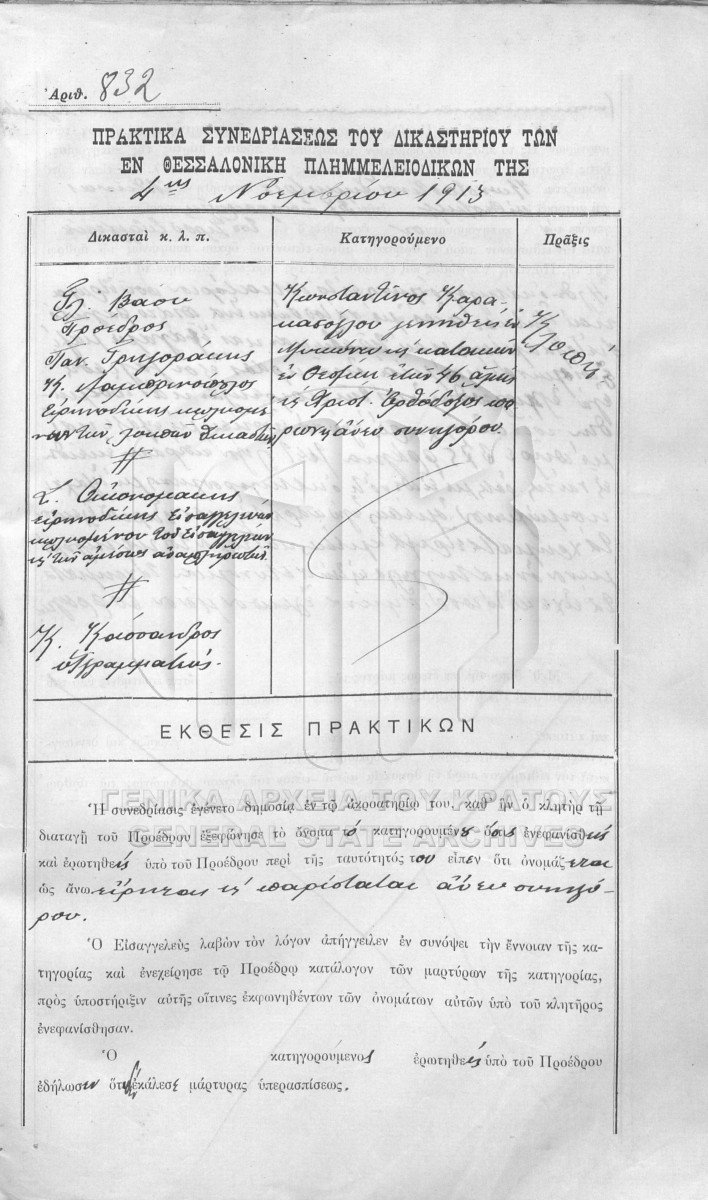 Ἀριθ. 832
ΠΡΑΚΤΙΚΑ ΣΥΝΕΔΡΙΑΣΕΩΣ ΤΟΥ ΔΙΚΑΣΤΗΡΙΟΥ ΤΩΝ
ΕΝ ΘΕΣΣΑΛΟΝΙΚΗ ΠΛΗΜΜΕΛΕΙΟΔΙΚΩΝ ΤΗΣ
4ης Νοεμβρίου 1913
Δικασταὶ κ. λ. π.
Γλ. Βάσου
Πρόεδρος
Παν. Γρηγοράκης
Κ. Λαμπρινόπουλος
Εἰρηνοδίκης κωλυομέ
νων τῶν λοιπῶν δικαστῶν
Σ. Οἰκονομάκης
εἰρηνοδίκης Εἰσαγγελεὺς
κωλυομένου τοῦ Εἰσαγγελέως
Κ. Κάσσανδρος
ὑπογραμματεύς.
Κατηγορούμενο
Κωνσταντῖνος Καρα-
κάσογλου γεννηθεὶς ἐν
κατοικῶν
ἐν Θεσ/κῃ ἐτῶν 46
Χριστ. Ὀρθόδοξος πα
ρὼν ἄνευ συνηγόρου.
Πρᾶξις
Κλοπὴ
ΕΚΘΕΣΙΣ ΠΡΑΚΤΙΚΩΝ
ΓΕΝΙΚΑ ΑΡΧΕΙΑ ΤΟΥ ΚΡΑΤΟΥΣ
GENERAL STATE ARCHIVES
Ἡ συνεδρίασις ἐγένετο δημοσίᾳ ἐν τῷ ἀκροατηρίῳ του, καθ' ἣν ὁ κλητὴρ τῇ
διαταγῇ τοῦ Προέδρου ἐξεφώνησε τὸ ὄνομα τοῦ κατηγορουμένου ὅστις ἐνεφανίσθη
καὶ ἐρωτηθεὶς ὑπὸ τοῦ Προέδρου περὶ τῆς ταυτότητός του εἶπεν ὅτι ὀνομάζεται
ὡς ἄνω εἴρηται καὶ παρίσταται ἄνευ συνηγό-
ρου.
Ὁ Εἰσαγγελεὺς λαβὼν τὸν λόγον ἀπήγγειλεν ἐν συνόψει τὴν ἔννοιαν τῆς κα-
τηγορίας καὶ ἐνεχείρησε τῷ Προέδρῳ κατάλογον τῶν μαρτύρων τῆς κατηγορίας,
πρὸς ὑποστήριξιν αὐτῆς οἵτινες ἐκφωνηθέντων τῶν ὀνομάτων αὐτῶν ὑπὸ τοῦ κλητῆρος
ἐνεφανίσθησαν.
Ὁ κατηγορούμενος ἐρωτηθεὶς ὑπὸ τοῦ Προέδρου
ἐδήλωσεν ὅτι δὲν ἐκάλεσε μάρτυρας ὑπερασπίσεως.